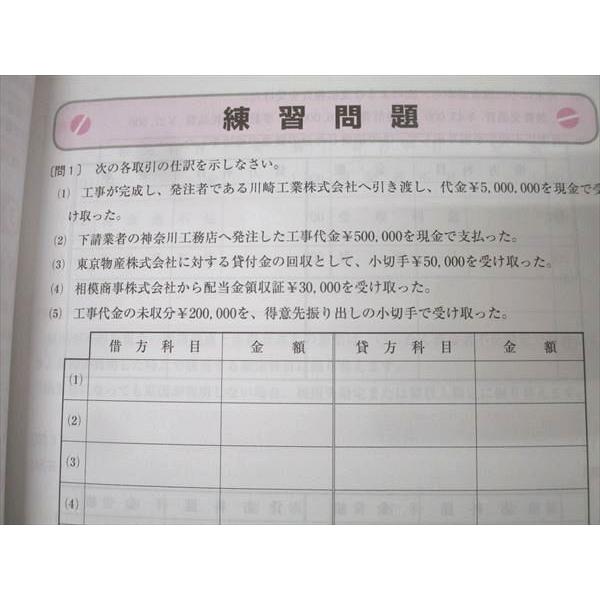 練習問題
〔問1〕 次の各取引の仕訳を示しなさい。
(1) 工事が完成し、発注者である川崎工業株式会社へ引き渡し、代金¥5,000,000を現金で受
け取った。
(2) 下請業者の神奈川工務店へ発注した工事代金¥500,000を現金で支払った。
(3) 東京物産株式会社に対する貸付金の回収として、小切手¥50,000を受け取った。
(4) 相模商事株式会社から配当金領収証¥30,000を受け取った。
(5) 工事代金の未収分¥200,000を、得意先振り出しの小切手で受け取った。
借方科目 金額 貸方科目 金額
(1)
(2)
(3)
(4)